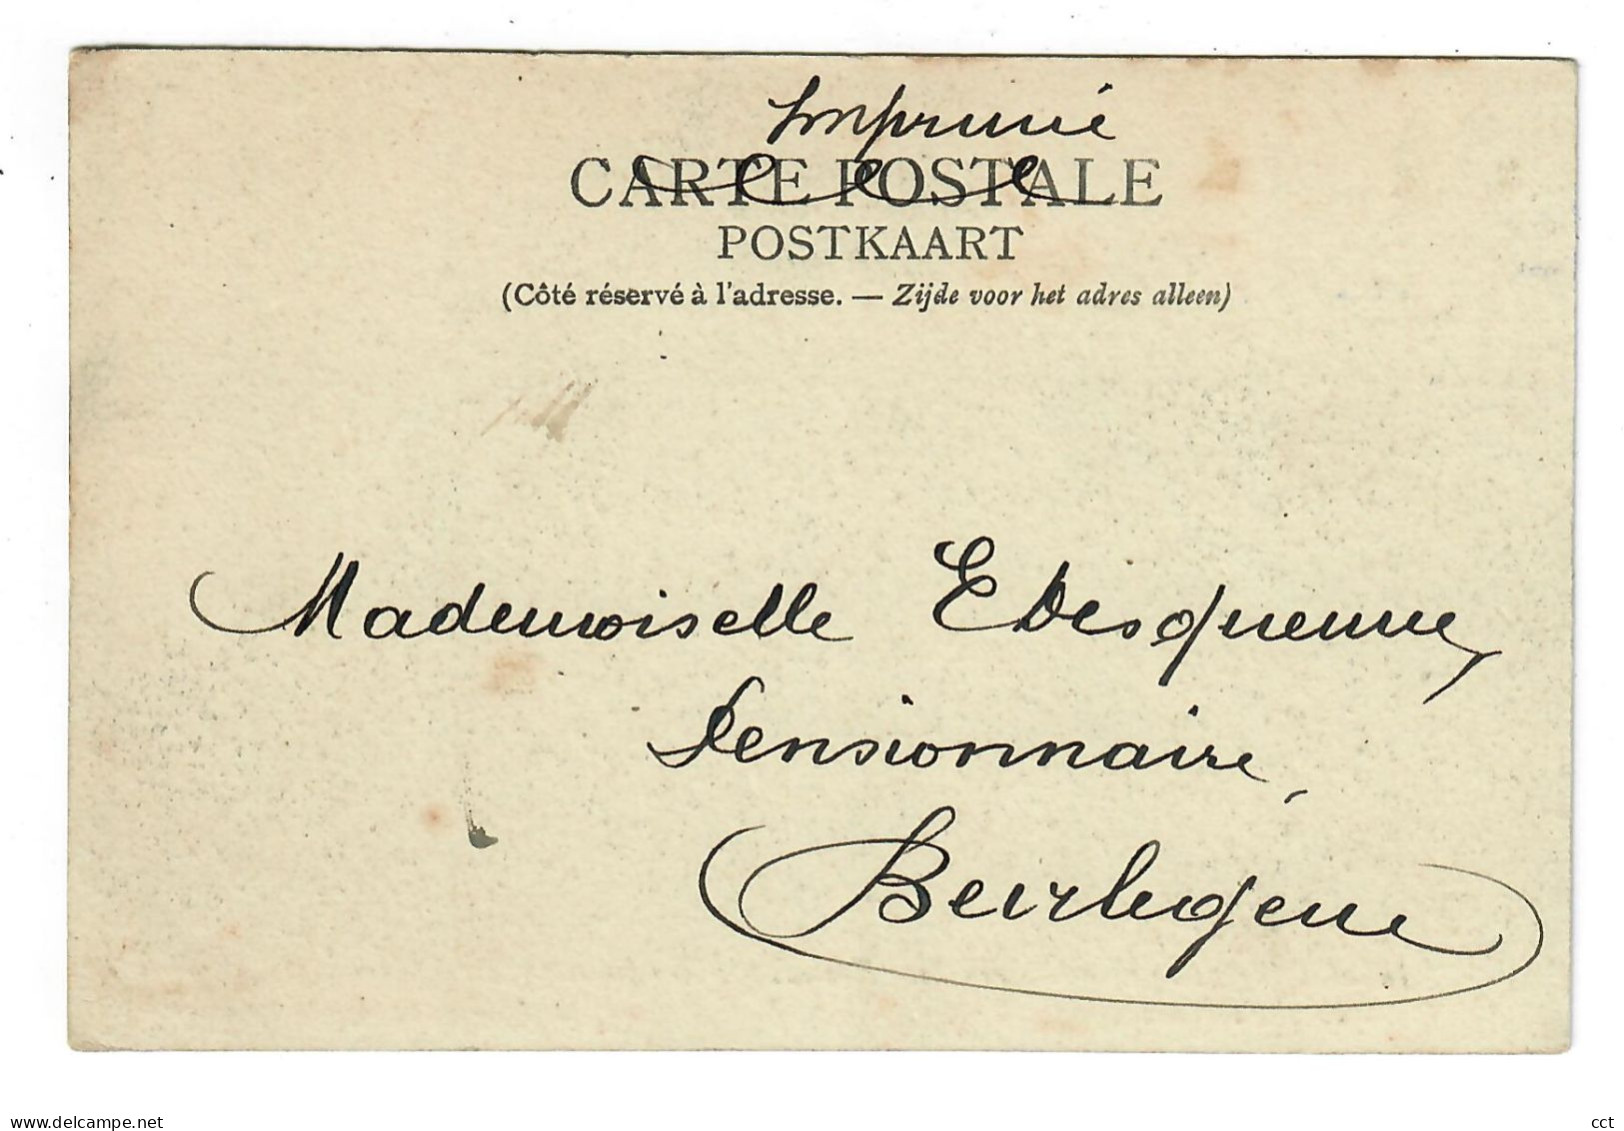 Imprimé
CARTE POSTALE
POSTKAART
(Côté réservé à l'adresse. — Zijde voor het adres alleen)
Mademoiselle E Desquenne,
Pensionnaire,
Beirlegem
www.delcampe.net
cct